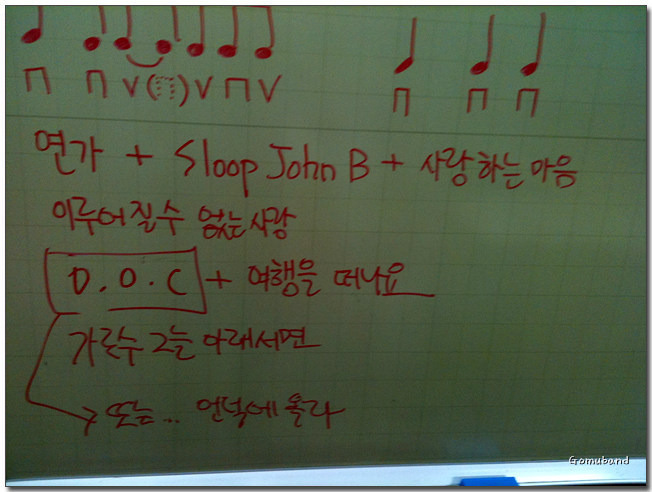 V ( ) V V
연가 + Sloop John B + 사랑하는 마음
이루어질수 없는 사랑
D.O.C + 여행을 떠나요
가로수 그늘 아래서면
또는... 언덕에 올라
Gomuband